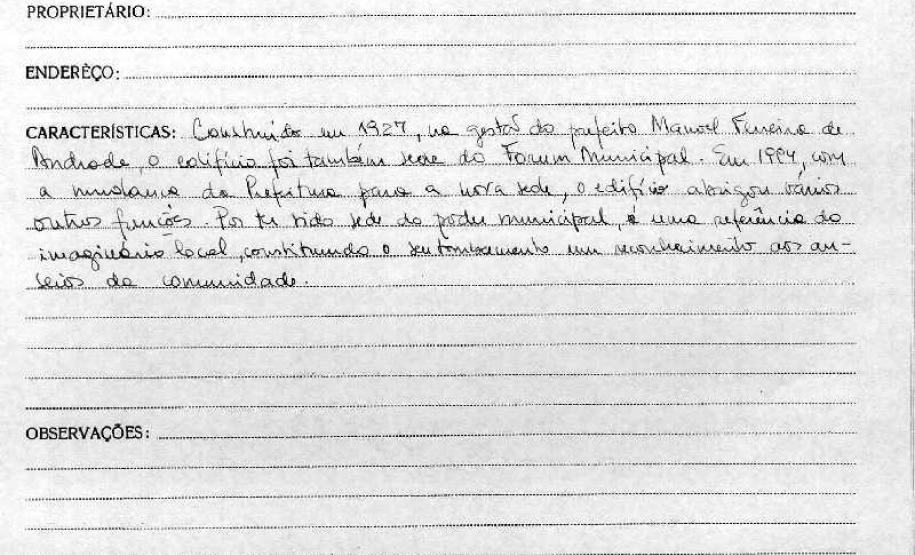 PROPRIETÁRIO:
ENDERÊÇO:
CARACTERÍSTICAS: Construído em 1927, na gestão do prefeito Manoel Ferreira de
Andrade, o edifício foi também sede do Forum Municipal. Em 1994, com
a mudança da Prefeitura para a nova sede, o edifício abrigou vários
outros funções. Por ter sido sede do poder municipal, é uma referência do
imaginário local, constituindo o seu tombamento um reconhecimento aos an-
seios da comunidade.
OBSERVAÇÕES: